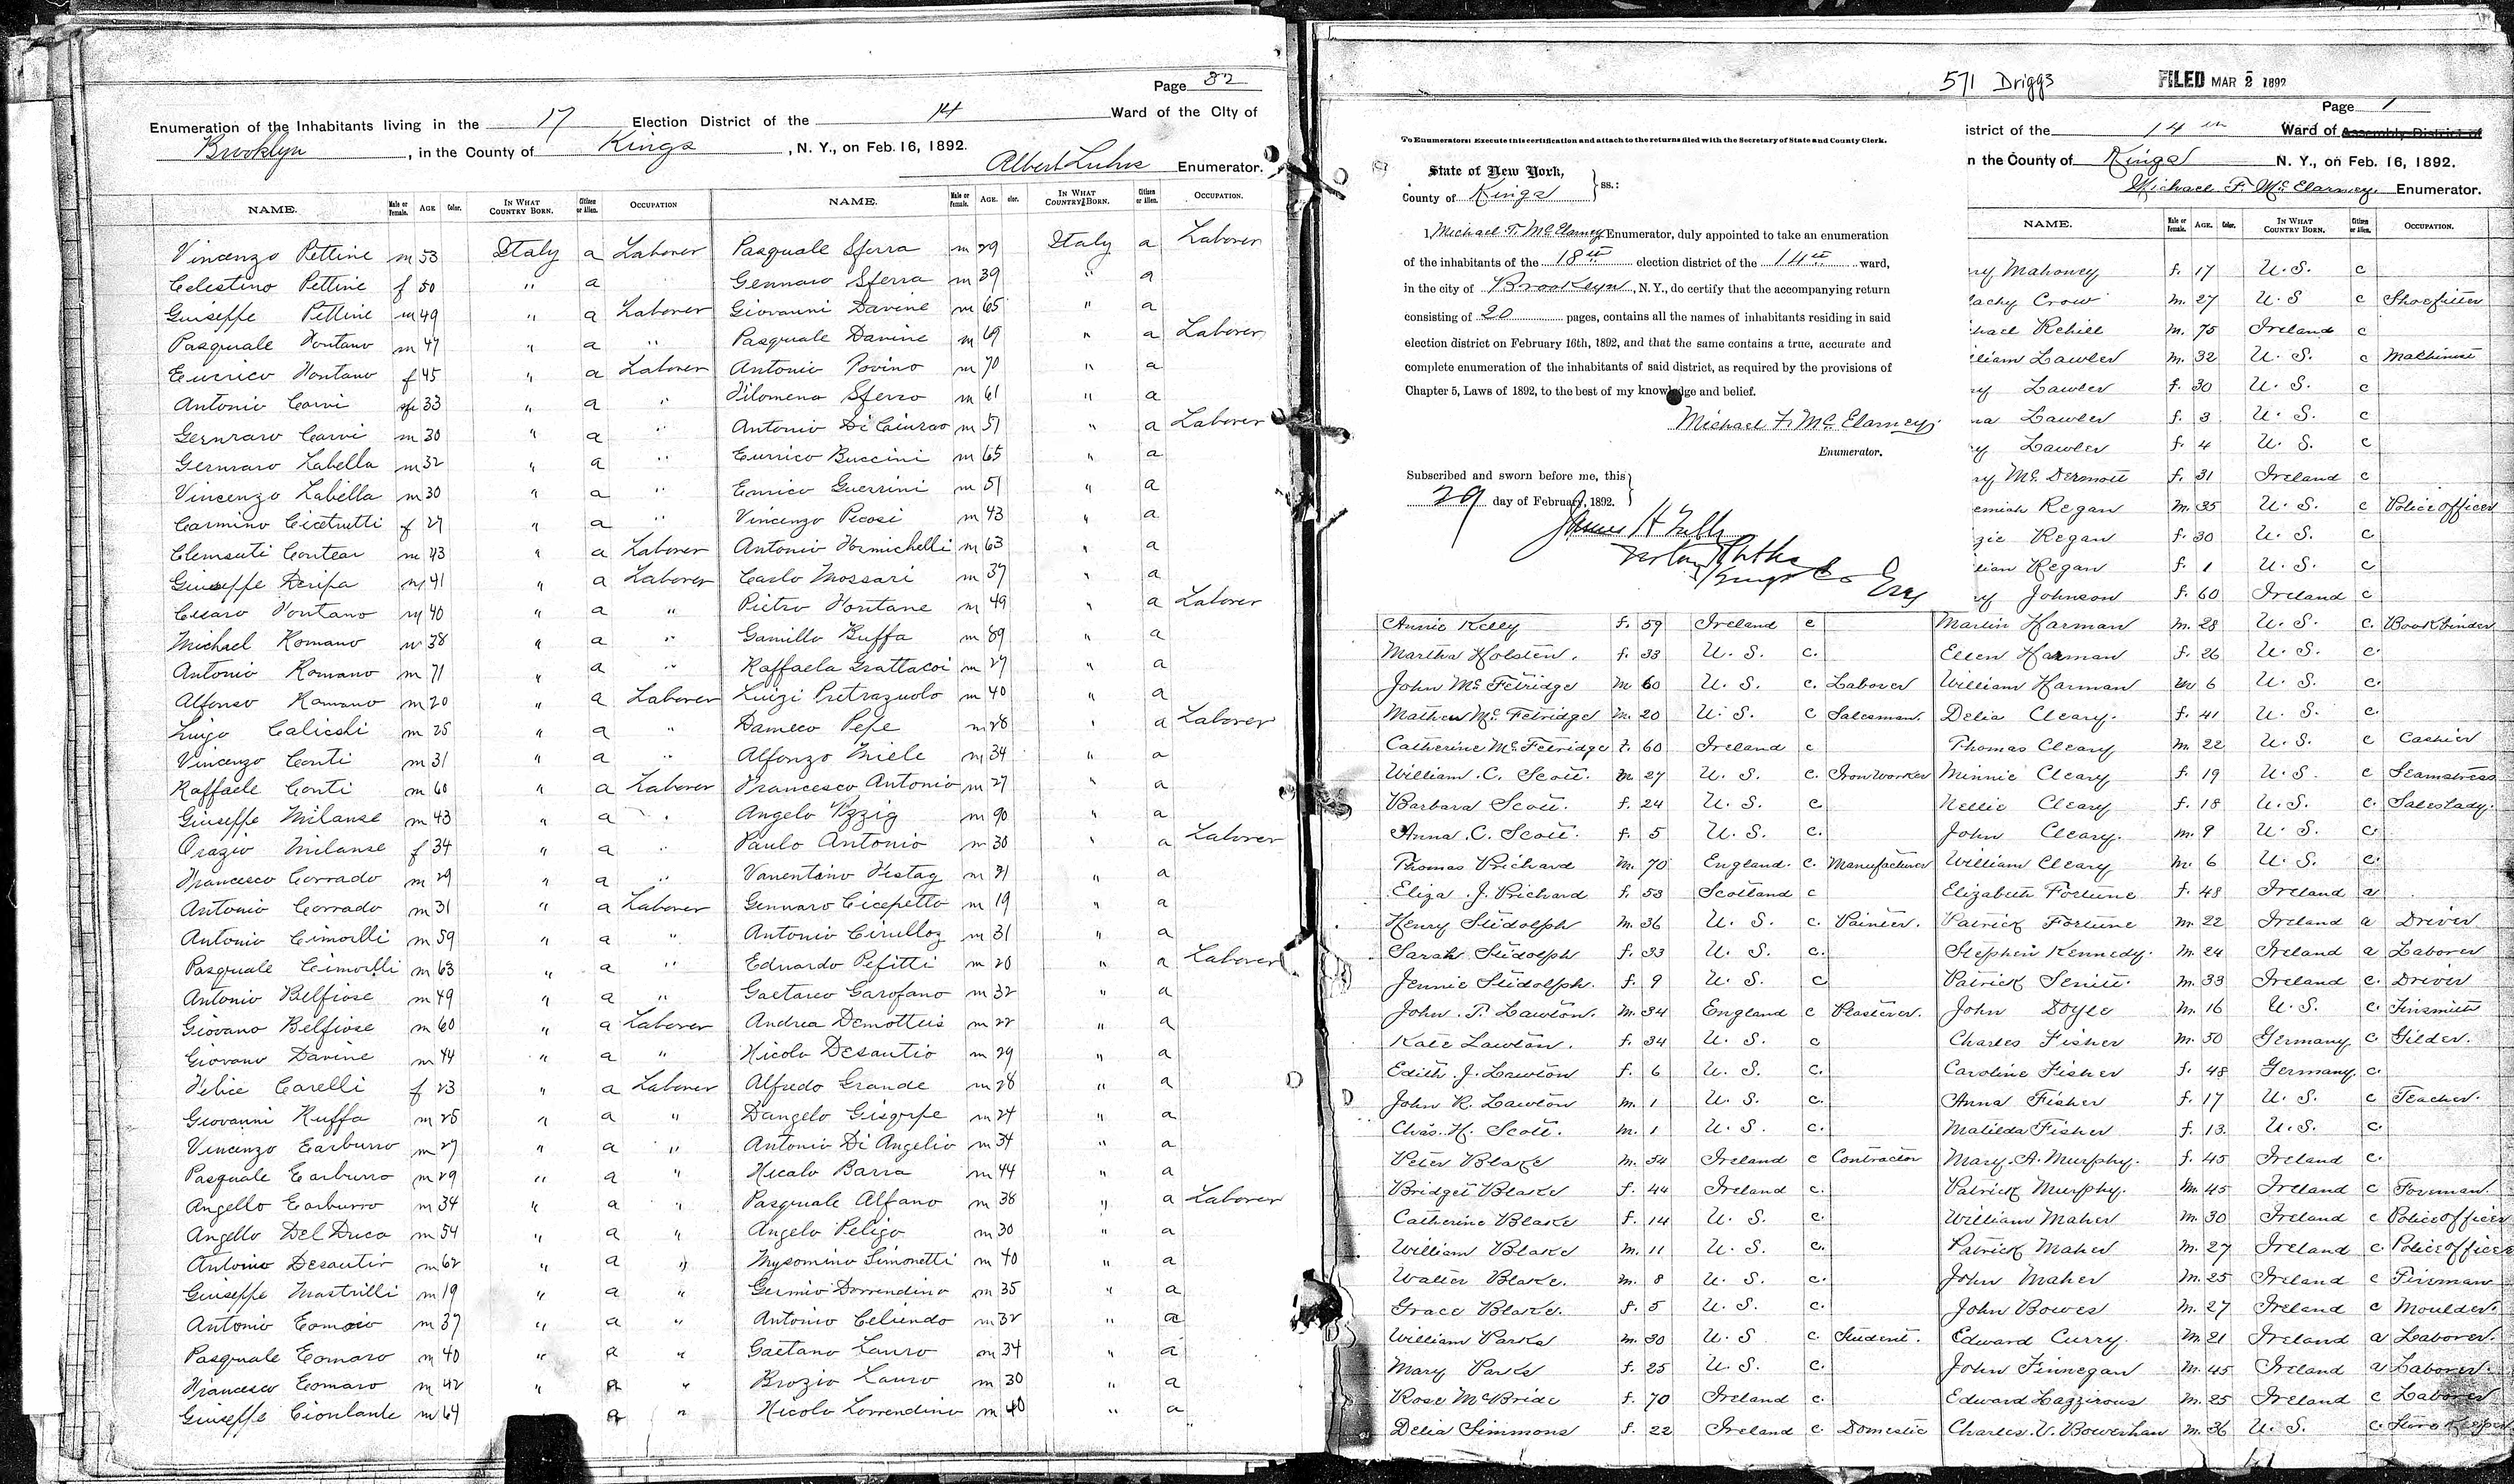 Page 82
Enumeration of the Inhabitants living in the 17 Election District of the 14 Ward of the City of
Brooklyn, in the County of Kings, N. Y., on Feb. 16, 1892.
Albert Luhrs Enumerator.
NAME. Male or Female. AGE Color. IN WHAT COUNTRY BORN. Citizen or Alien. OCCUPATION NAME. Male or Female. AGE. olor. IN WHAT COUNTRY BORN. Citizen or Alien. OCCUPATION.
Vincenzo Pettine m 53 Italy a Laborer Pasquale Sferra m 29 Italy a Laborer
Celestino Pettine f 50 " a Gennaro Sferra m 39 " a
Guiseppe Pettine m 49 " a Laborer Giovanni Davine m 65 " a
Pasquale Fontano m 47 " a " Pasquale Davine m 69 " a Laborer
Eurrico Fontano f 45 " a Laborer Antonio Povino m 70 " a
Antonio Carvi 33 " a " Filomena Sferro m 61 " a
Gernraro Carvi m 30 " a " Antonio m 51 " a Laborer
Gernraro Labella m 32 " a " Eurrico Buccini m 65 " a
Vincenzo Labella m 30 " a " Enrico Guerrini m 51 " a
Carmino f 27 " a " Vincenzo Pecosi m 43 " a
Contear m 43 " a Laborer Antonio Formichelli m 63 " a
Giuseppe m 41 " a Laborer Carlo Mossari m 37 " a
Cesaro Fontano m 40 " a " Pietro Fontane m 49 " a Laborer
Michael Romano m 38 " a " Gamillo Buffa m 89 " a
Antonio Romano m 71 " a " Raffaela Grattacoi m 27 " a
Alfonso Romano m 20 " a Laborer Luigi m 40 " a
Luigo m 25 " a " Dameco Pepe m 28 " a Laborer
Vincenzo Conti m 31 " a " Alfonzo Miele m 34 " a
Raffaele Conti m 60 " a Laborer Francesco Antonio m 27 " a
Giuseppe Milanse m 43 " a " Angelo m 90 " a
Orazio Milanse f 34 " a " Paulo Antonio m 30 " a Laborer
Francesco Corrado m 29 " a " Vanentino m 21 " a
Antonio Corrado m 31 " a Laborer Gennaro Cicepetto m 19 " a
Antonio Cimorlli m 59 " a " Antonio m 31 " a
Pasquale Cimorlli m 63 " a " Eduardo Pefitti m 20 " a Laborer
Antonio Belfiose m 49 " a " Gaetano Garofano m 32 " a
Giovano Belfiose m 60 " a Laborer Andrea m 22 " a
Giovano Davine m 44 " a " Nicola Desautio m 29 " a
Felice Carelli f 23 " a Laborer Alfredo Grande m 28 " a
Giovanni Ruffa m 25 " a " Dangelo m 24 " a
Vincenzo Earburro m 27 " a " Antonio Di Angelio m 34 " a
Pasquale Earburro m 29 " a " Nicalo Barra m 44 " a
Angello Earburro m 34 " a " Pasquale Alfano m 38 " a Laborer
Angello Del Duca m 54 " a " Angelo Peligo m 30 " a
Antonio Desautir m 62 " a " Mysomino Simonetti m 40 " a
Giuseppe Mastrilli m 19 " a " Germio Dorrendino m 35 " a
Antonio m 37 " a " Antonio Celiendo m 32 " a
Pasquale Eomaro m 40 " a " Gaetano Lauro m 34 " a
Francesco Eomaro m 42 " a " Brozio Lauro m 30 " a
Giuseppe Cionlante m 64 a " Nicola Lorrendino m 40 " a
571 Driggs FILED MAR 2 1892
Page 1
istrict of the 14th Ward of Assembly District of
n the County of Kings N. Y., on Feb. 16, 1892.
Michael F. McElarney, Enumerator.
To Enumerators: Execute this certification and attach to the returns filed with the Secretary of State and County Clerk.
State of New York,
County of Kings } ss.:
I, Michael F. McElarney Enumerator, duly appointed to take an enumeration
of the inhabitants of the 18th election district of the 14th ward,
in the city of Brooklyn, N. Y., do certify that the accompanying return
consisting of 20 pages, contains all the names of inhabitants residing in said
election district on February 16th, 1892, and that the same contains a true, accurate and
complete enumeration of the inhabitants of said district, as required by the provisions of
Chapter 5, Laws of 1892, to the best of my knowledge and belief.
Michael F. McElarney.
Enumerator.
Subscribed and sworn before me, this
29 day of February, 1892.
James H
Kings Co
NAME. Male or Female. AGE. Color. IN WHAT COUNTRY BORN. Citizen or Alien. OCCUPATION.
ry Mahoney f. 17 U. S. c
lachy Crow m. 27 U. S c Shoefitter
hael Kehill m. 75 Ireland c
lliam Lawler m. 32 U. S. c Machinist
ry Lawler f. 30 U. S. c
na Lawler f. 3 U. S. c
ry Lawler f. 4 U. S. c
ry McDermott f. 31 Ireland c
emiah Regan m. 35 U. S. c Police officer
zie Regan f. 30 U. S. c
lian Regan f. 1 U. S. c
ry Johnson f. 60 Ireland c
Annie Kelly f. 59 Ireland c Martin Harman m. 28 U. S. c. Bookbinder
Martha Holsten. f. 33 U. S. c. Ellen Harman f. 26 U. S. c.
John McFetridge m 60 U. S. c. Laborer William Harman m 6 U. S. c.
Mathew McFetridge m. 20 U. S. c Salesman. Delia Cleary. f. 41 U. S. c.
Catherine McFetridge f. 60 Ireland c Thomas Cleary m. 22 U. S. c Cashier
William. C. Scott. m. 27 U. S. c. Iron Worker Minnie Cleary f. 19 U. S. c Seamstress
Barbara Scott. f. 24 U. S. c Nellie Cleary f. 18 U. S. c. Saleslady.
Anna. C. Scott. f. 5 U. S. c. John Cleary. m. 9 U. S. c.
Thomas Prichard m. 70 England. c. Manufacturer William Cleary m. 6 U. S. c.
Eliza. J. Prichard f. 53 Scotland c Elizabeth Fortune f. 48 Ireland a
Henry Stidolph m. 36 U. S. c. Painter. Patrick Fortune m. 22 Ireland a Driver
Sarah Stidolph f. 33 U. S. c. Stephen Kennedy. m. 24 Ireland a Laborer
Jennie Stidolph. f. 9 U. S. c Patrick m. 33 Ireland c. Driver
John. T. Lawton. m. 34 England c Plasterer. John Doyle m. 16 U. S. c. Tinsmith
Kate Lawton. f. 34 U. S. c Charles Fisher m. 50 Germany c Gilder.
Edith. J. Lawton f. 6 U. S. c. Caroline Fisher f. 48 Germany. c.
John R. Lawton m. 1 U. S. c. Anna Fisher f. 17 U. S. c Teacher.
Chas. H. Scott. m. 1 U. S. c. Matilda Fisher f. 13. U. S. c.
Peter Blake m. 54 Ireland c Contractor Mary. A. Murphy. f. 45 Ireland c.
Bridget Blake f. 44 Ireland c. Patrick Murphy. m. 45 Ireland c Foreman.
Catherine Blake f. 14 U. S. c. William Maher m. 30 Ireland c Police officer
William Blake m. 11 U. S. c. Patrick Maher m. 27 Ireland c. Police officer
Walter Blake. m. 8 U. S. c. John Maher m. 25 Ireland c Fireman
Grace Blake. f. 5 U. S. c. John Bowes m. 27 Ireland c Moulder.
William Parks m. 30 U. S c. Student. Edward Curry. m. 21 Ireland a Laborer.
Mary Parks f. 25 U. S. c. John Finnegan m. 45 Ireland a Laborer.
Rose McBride f. 70 Ireland c. Edward Lazzirous m. 25 Ireland c Laborer
Delia Simmons f. 22 Ireland c. Domestic Charles. V. Bowerhan m. 36 U. S. c.